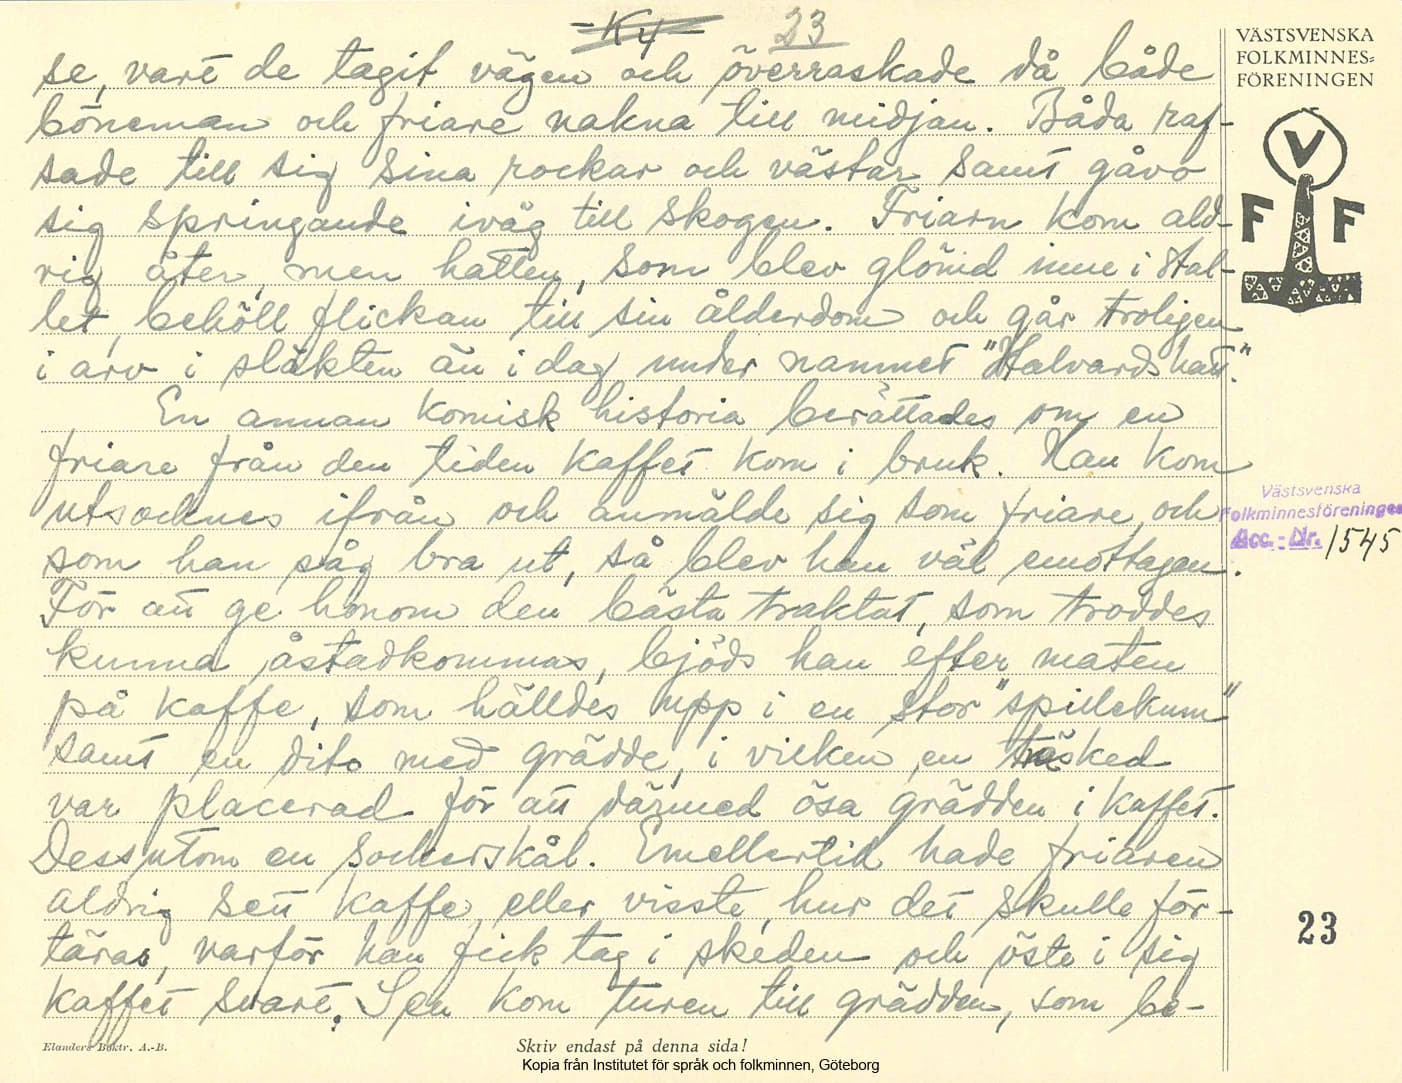 K 4 23
VÄSTSVENSKA
FOLKMINNES=
FÖRENINGEN
V
F F
se, vart de tagit vägen och överraskade då både
böneman och friare nakna till midjan. Båda raf-
sade till sig sina rockar och västar samt gåvo
sig springande iväg till skogen. Friarn kom ald-
rig åter, men hatten, som blev glömd inne i stal-
let, behöll flickan till sin ålderdom och går troligen
i arv i släkten än i dag under namnet "Halvards hatt."
En annan komisk historia berättades om en
friare från den tiden kaffet kom i bruk. Han kom
utsocknes ifrån och anmälde sig som friare, och
som han såg bra ut, så blev han väl emottagen.
För att ge honom den bästa traktat, som troddes
kunna åstadkommas, bjöds han efter maten
på kaffe, som hälldes upp i en stor "spillekum"
samt en dito med grädde, i vilken en träsked
var placerad för att därmed ösa grädden i kaffet.
Dessutom en sockerskål. Emellertid hade friaren
aldrig sett kaffe, eller visste, hur det skulle för-
täras, varför han fick tag i skeden och öste i sig
kaffet svart. Sen kom turen till grädden, som be-
Västsvenska
Folkminnesföreningen
Acc.-Nr. 1545
23
Elanders Boktr. A.-B.
Skriv endast på denna sida!
Kopia från Institutet för språk och folkminnen, Göteborg